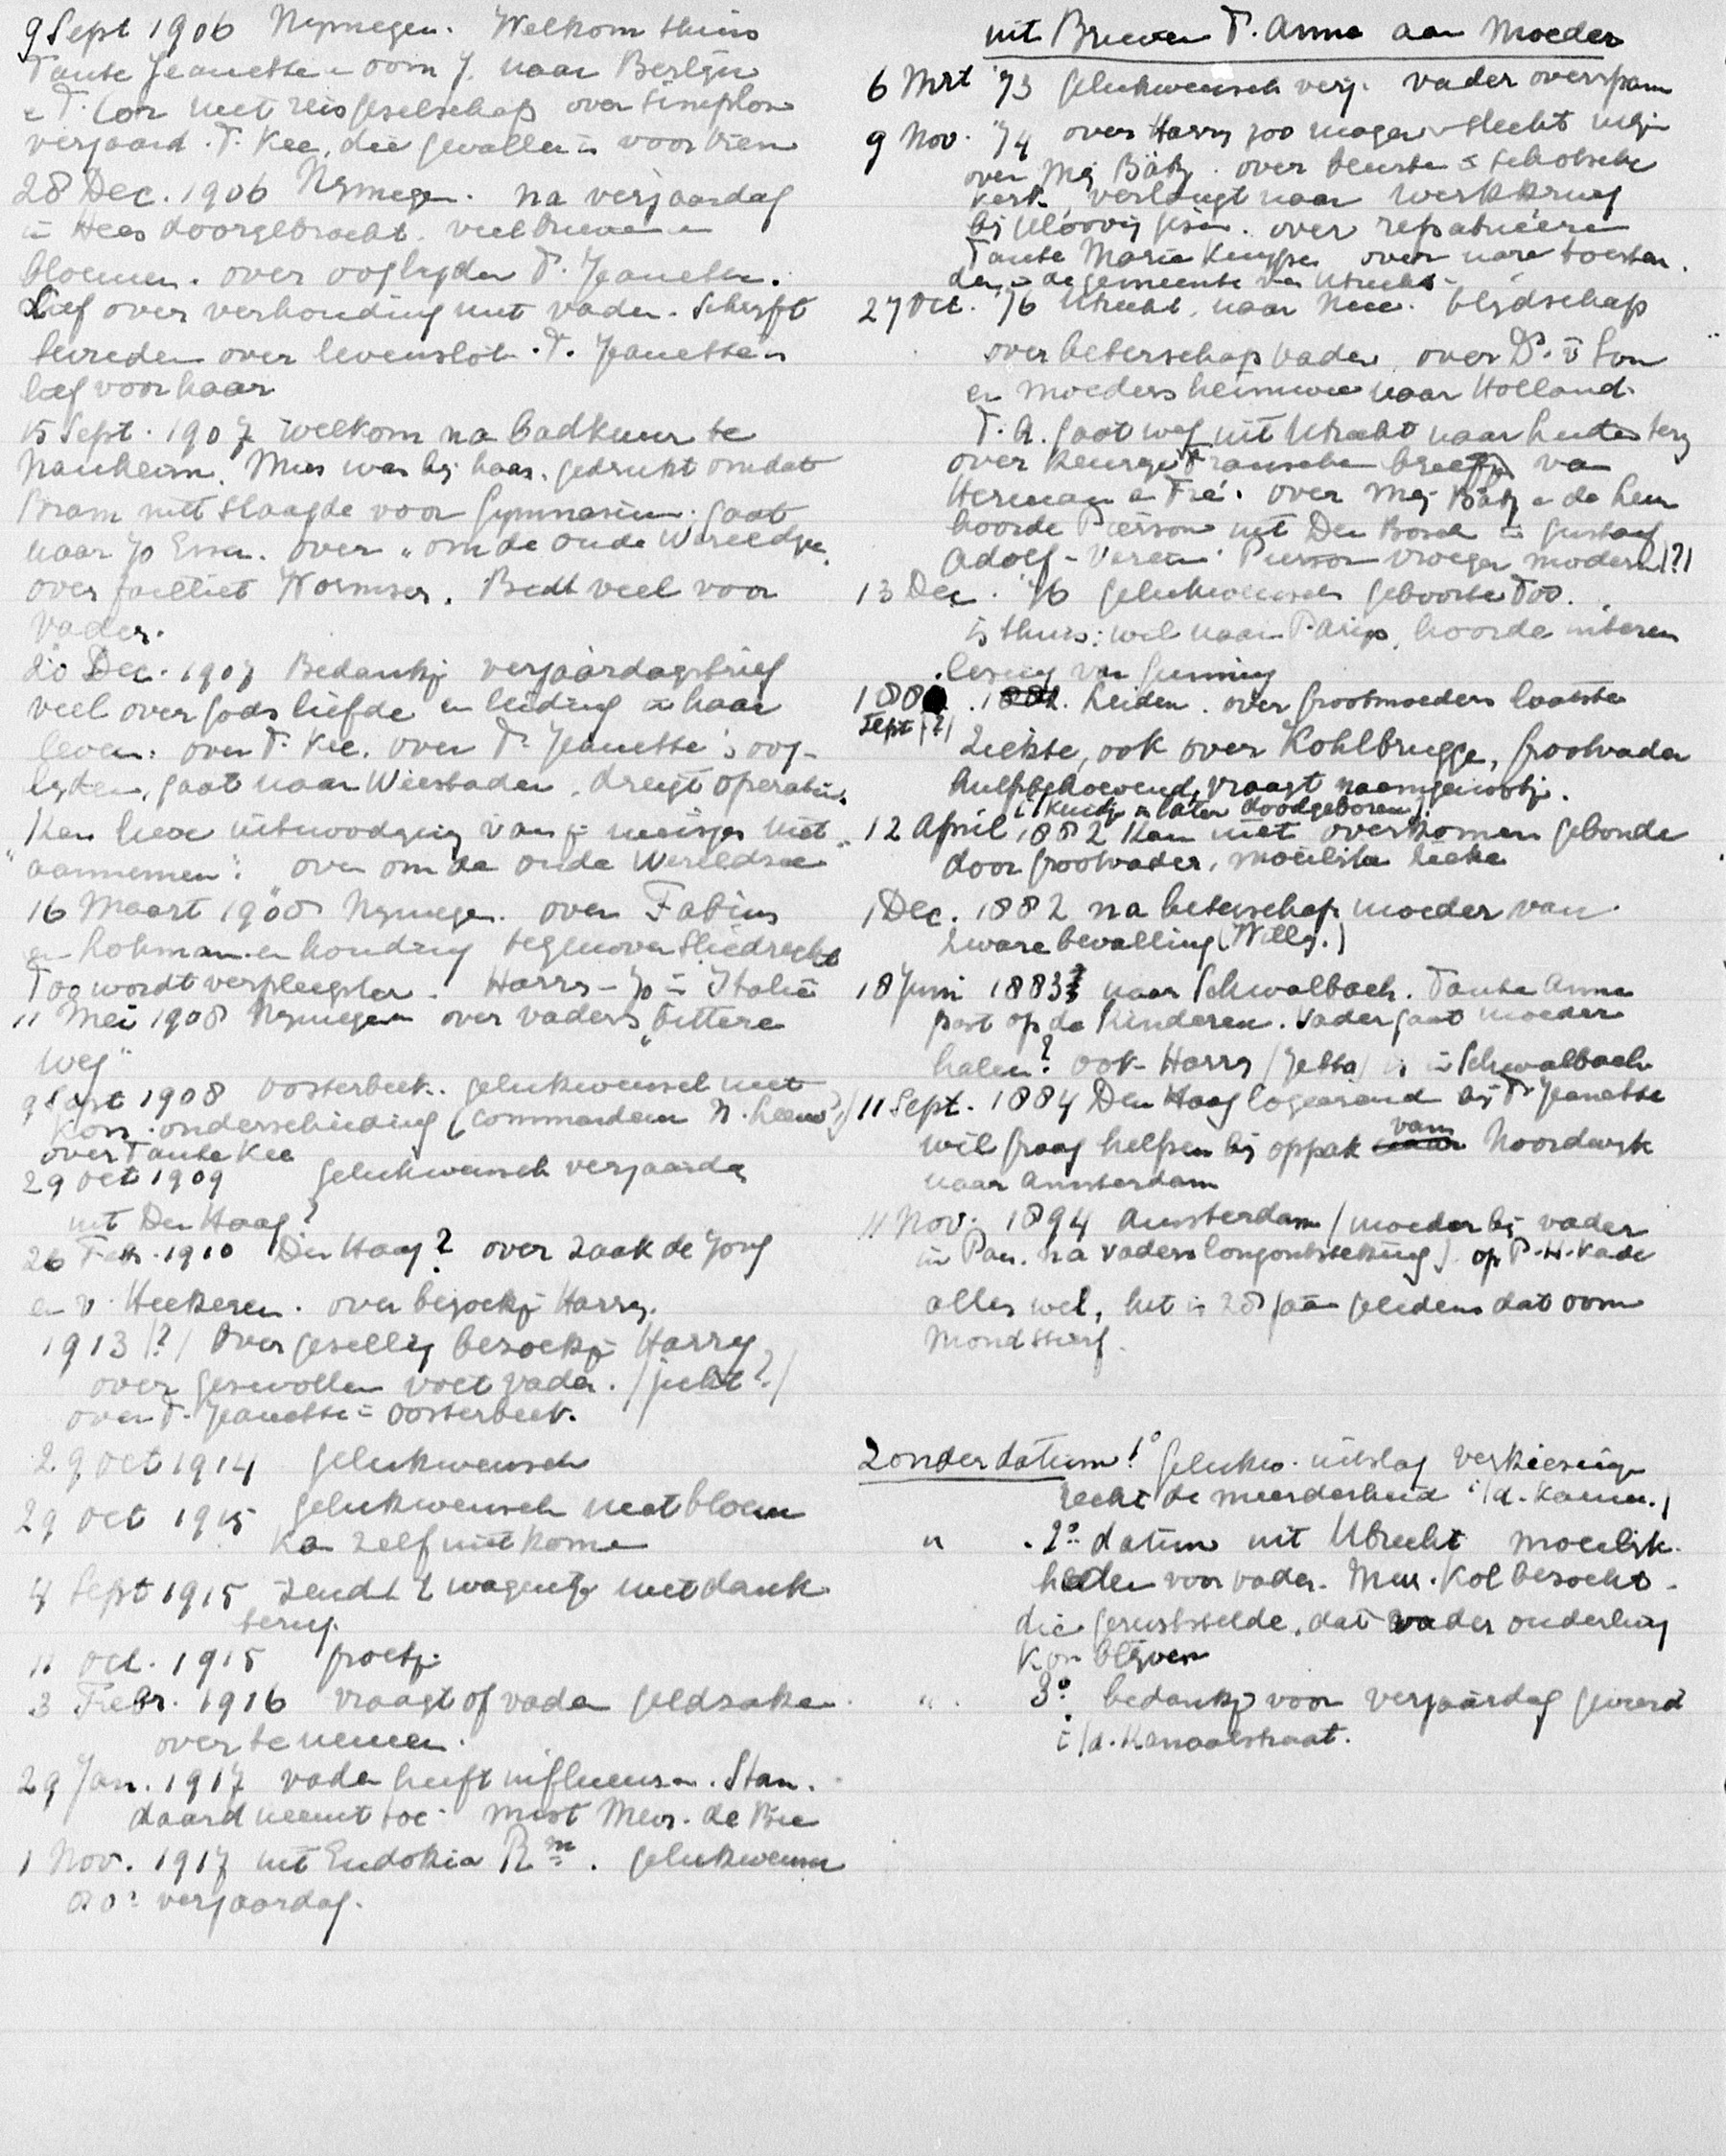 9 Sept 1906 Nymegen. Welkom thuis
Tante Jeanette en oom J. naar Berlijn
e T. Cor met reisgeselschap over Simplon
verjaard. T. Kee, die gevallen is voor
28 Dec. 1906 Nymegen. na verjaardag
in Hees doorgebracht. veel brieven en
bloemen. over ooglyden T. Jeanette.
Lief over verhouding met vader. Schryft
tevreden over levenslot. T. Jeanette is
lief voor haar
15 Sept. 1907 Welkom na badkuur te
Nauheim. Mies was bij haar. gedrukt omdat
Bram niet slaagde voor Gymnasium. gaat
naar Jo Essen. over "om de oude Wereldzee
over failliet Wormser. Bedt veel voor
Vader.
20 Dec. 1907 Bedankje verjaardagsbrief
veel over Gods liefde en leiding in haar
leven. over T. Kee. over T. Jeanette's oog-
lyden, gaat naar Wiesbaden, dreigt operatie.
"Kan lieve uitnoodiging van je meisjes niet
aannemen". over om de oude Wereldzee
16 Maart 1908 Nymegen. over Fabius
en Lohman en houding tegenover Sliedrecht
Too wordt verpleegster. Harry - Jo in Italië
11 Mei 1908 Nymegen over vaders "bittere
weg"
9 Sept 1908 Oosterbeek. gelukwensch met
Kon. onderscheiding (commandeur N. Leeuw?)
over Tante Kee
29 Oct 1909 gelukwensch verjaardag
uit Den Haag?
26 Febr. 1910 Den Haag? over zaak de Jong
en v. Heekeren. over bezoekje Harry.
1913 (?) Over gesellig bezoekje Harry
over geswollen voet vader. (jicht?)
over T. Jeanette in Oosterbeek.
29 Oct 1914 gelukwensch
29 Oct 1915 gelukwensch met bloem
Kan zelf niet komen
4 Sept 1915 zendt 't wagentje met dank
terug.
11 Oct. 1915 groetje
3 Febr. 1916 vraagt of vader geldzaken
over te nemen.
29 Jan. 1917 vader heeft influenza. Stan-
daard neemt toe. mist Mevr. de Bie
1 Nov. 1917 uit Eudokia Rm. gelukwensch
80e verjaardag.
uit Brieven T. Anna aan Moeder
6 Mrt '73 gelukwensch verj. vader overspann
9 Nov. '74 over Harry zoo mager slecht
over Mej Bätz. over beurste Schotsche
kerk, verlangt naar werkkring
bij. over repatrieeren
Tante Marie Kuyper over nare toestan-
den in de gemeente van Utrecht.
27 Oct. '76 Utrecht, naar Nice. blijdschap
over beterschap vader over Ds. v Son
en moeders heimwee naar Holland.
T. A. gaat weg uit Utrecht naar
over keurige Fransche briefje van
Herman en Fré. over Mej Bätz
hoorde Pierson uit Den Bosch in Gustaaf
Adolf-Vereen. Pierson vroeger modern (?)
13 Dec. '76 gelukwensch geboorte Too.
is thuis: wil naar Parijs, hoorde interes
lezing van Gunning
188 . 1882. Leiden. over grootmoeders laatste
Sept (?)
ziekte, ook over Kohlbrugge, grootvader
hulpbehoevend, vraagt naamgenootje.
(Kindje is later doodgeboren)
12 April 1882 Kan niet overkomen gebonde
door grootvader, moeilijke zieke
1 Dec. 1882 na beterschap moeder van
zware bevalling (Willy.)
18 Juni 1883? naar Schwalbach. Tante Anna
past op de kinderen. Vader gaat moeder
halen? ook Harry (Jetta) is in Schwalbach
11 Sept. 1884 Den Haag logeerend bij T. Jeanette
wil graag helpen bij oppak van Noordwyk
naar Amsterdam
11 Nov. 1894 Amsterdam (moeder bij vader
in Pau. na vaders longontsteking). op P.H. kade
alles wel, het is 28 jaar geleden dat oom
Mond stierf.
Zonder datum! 1o Gelukw. uitslag verkiezinge
rechtsche meerderheid i/d. Kamer.)
" 2o datum uit Utrecht moeilyk-
heden voor vader. Mevr. Kol bezocht
die geruststelde, dat vader ouderling
kon blijven
" 3o bedankje voor verjaardag gevierd
i/d. Kanaalstraat.